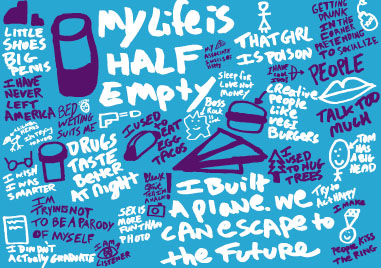 LITTLE
SHOES
BIG
PENIS
I HAVE
NEVER
LEFT
AMERICA
MY LIFE IS
HALF
EMPTY
BED
WETTING
SUITS ME
I WISH
I WAS
SMARTER
DRUGS
TASTE
Better
At Night
I USED
EAT
EGG
TACOS
Sleep for
Love Not
Money
BOSS
THAT GIRL
IS POISON
GETTING
DRUNK
IN THE
CORNER
PRETENDING
TO SOCIALIZE
PEOPLE
TALK TOO
MUCH
creative
People
Like
BURGERS
I
USED
TO HUG
TREES
TOM
HAS A
BIG
HEAD
I'M
TRYING NOT
TO BE A PARODY
OF MYSELF
I DIDN'T
Actually GRADUATE
I AM A
LISTENER
SEX IS
MORE
FUN THAN
PHOTO
I BUILT
A PLANE. WE
CAN ESCAPE TO
the FUTURE
I MAKE
PEOPLE KISS
THE RING